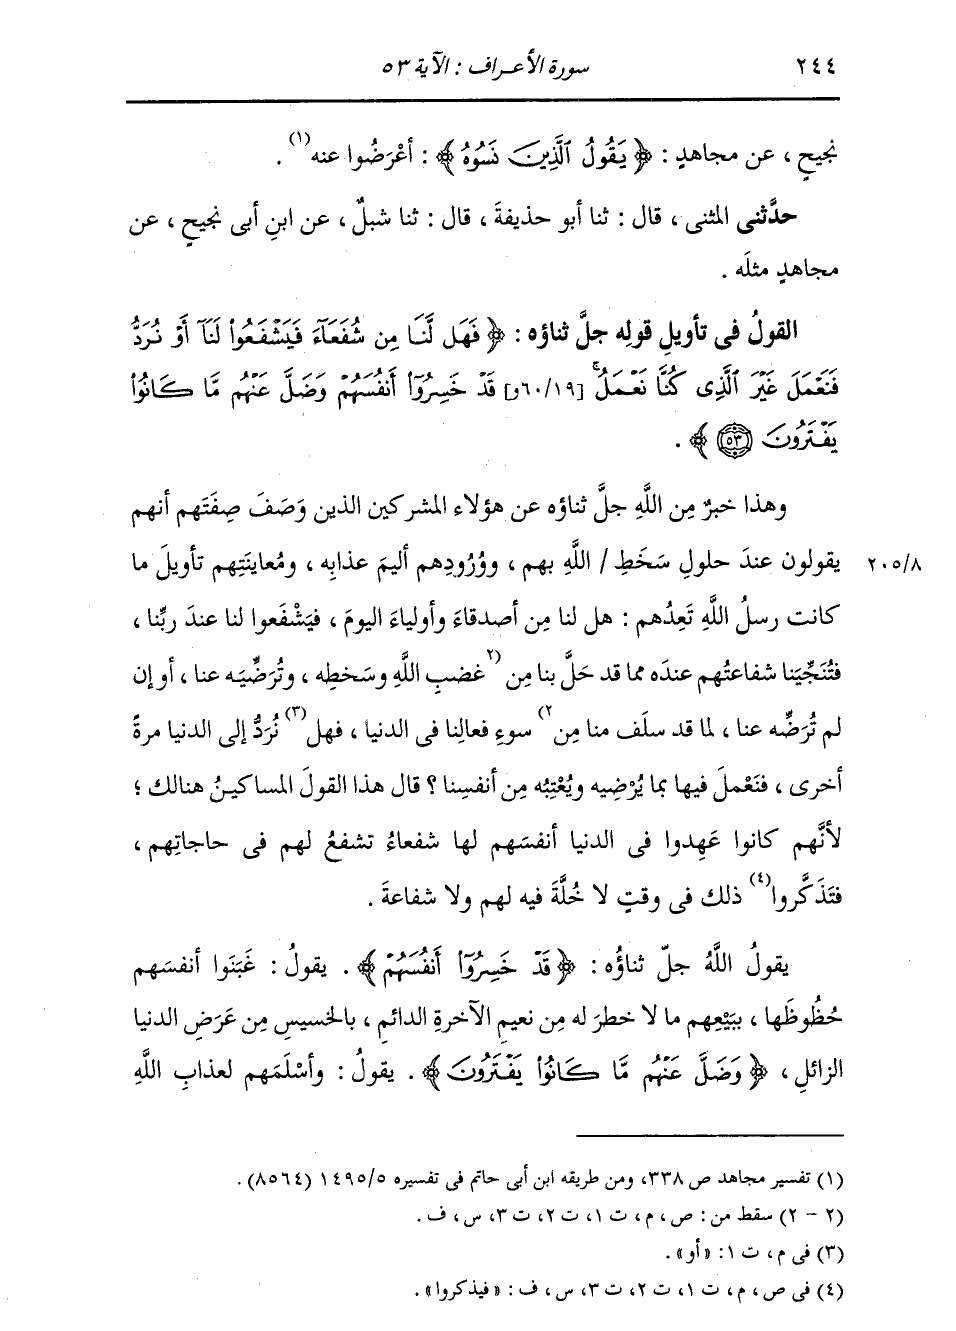 ٢٤٤ سورة الأعراف : الآية ٥٣
نجيحٍ ، عن مجاهدٍ : ﴿ يَقُولُ ٱلَّذِينَ نَسُوهُ ﴾ : أعْرَضُوا عنه(١) .
حدَّثنى المثنى ، قال : ثنا أبو حذيفةَ ، قال : ثنا شبلٌ ، عن ابنِ أبى نجيحٍ ، عن
مجاهدٍ مثلَه .
القولُ فى تأويلِ قولِه جلَّ ثناؤه : ﴿ فَهَل لَّنَا مِن شُفَعَآءَ فَيَشْفَعُوا۟ لَنَآ أَوْ نُرَدُّ
فَنَعْمَلَ غَيْرَ ٱلَّذِى كُنَّا نَعْمَلُ ۚ [٦٠/١٩و] قَدْ خَسِرُوٓا۟ أَنفُسَهُمْ وَضَلَّ عَنْهُم مَّا كَانُوا۟
يَفْتَرُونَ ٥٣ ﴾ .
وهذا خبرٌ مِن اللَّهِ جلَّ ثناؤه عن هؤلاء المشركين الذين وَصَفَ صِفَتَهم أنهم
يقولون عندَ حلولِ سَخَطِ / اللَّهِ بهم ، ووُرُودِهم أليمَ عذابِه ، ومُعاينَتِهم تأويلَ ما ٢٠٥/٨
كانت رسلُ اللَّهِ تَعِدُهم : هل لنا مِن أصدقاءَ وأولياءَ اليومَ ، فيَشْفَعوا لنا عندَ ربِّنا ،
فتُنَجِّيَنا شفاعتُهم عندَه مما قد حَلَّ بنا مِن (٢غضبِ اللَّهِ وسَخطِه ، وتُرَضِّيَه عنا ، أو إن
لم تُرَضِّه عنا ، لما قد سلَف منا مِن ٢) سوءِ فعالِنا فى الدنيا ، فهل(٣) نُرَدُّ إلى الدنيا مرةً
أخرى ، فنَعْملَ فيها بما يُرْضِيه ويُعْتِبُه مِن أنفسِنا ؟ قال هذا القولَ المساكينُ هنالك ؛
لأنَّهم كانوا عَهِدوا فى الدنيا أنفسَهم لها شفعاءُ تشفعُ لهم فى حاجاتِهم ،
فتَذَكَّروا(٤) ذلك فى وقتٍ لا خُلَّةَ فيه لهم ولا شفاعةَ .
يقولُ اللَّهُ جلّ ثناؤُه : ﴿ قَدْ خَسِرُوٓا۟ أَنفُسَهُمْ ﴾ . يقولُ : غَبَنوا أنفسَهم
حُظُوظَها ، ببَيْعِهم ما لا خطرَ له مِن نعيمِ الآخرةِ الدائمِ ، بالخسيسِ مِن عَرَضِ الدنيا
الزائلِ ، ﴿ وَضَلَّ عَنْهُم مَّا كَانُوا۟ يَفْتَرُونَ ﴾ . يقولُ : وأسْلَمَهم لعذابِ اللَّهِ
(١) تفسير مجاهد ص ٣٣٨، ومن طريقه ابن أبى حاتم فى تفسيره ١٤٩٥/٥ (٨٥٦٤) .
(٢ - ٢) سقط من : ص ، م ، ت ١، ت ٢، ت ٣، س ، ف .
(٣) فى م ، ت ١: «أو» .
(٤) فى ص ، م ، ت ١، ت ٢، ت ٣، س ، ف : «فيذكروا» .